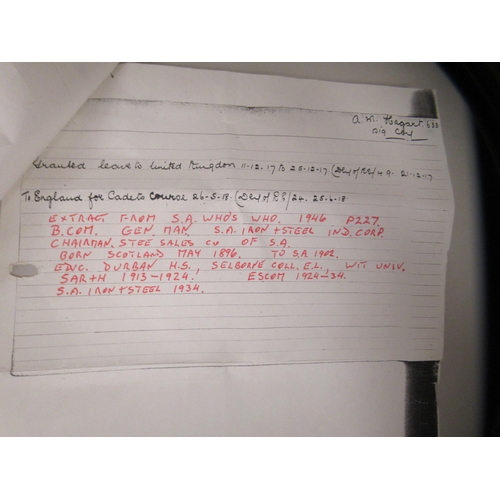 A. M. Hogart 633
Sig Coy
Granted leave to United Kingdom 11-12-17 to 25-12-17 (
To England for Cadets Course 26-5-18. (
EXTRACT FROM S.A. WHO'S WHO. 1946 P227.
B.COM. GEN. MAN. S.A. IRON + STEEL IND. CORP.
CHAIRMAN. STEE SALES CO OF S.A.
BORN SCOTLAND MAY 1896. TO S.A 1902.
EDUC. DURBAN H.S. SELBORNE COLL. E.L., WIT UNIV.
SAR+H 1913-1924. ESCOM 1924-34.
S.A. IRON + STEEL 1934.